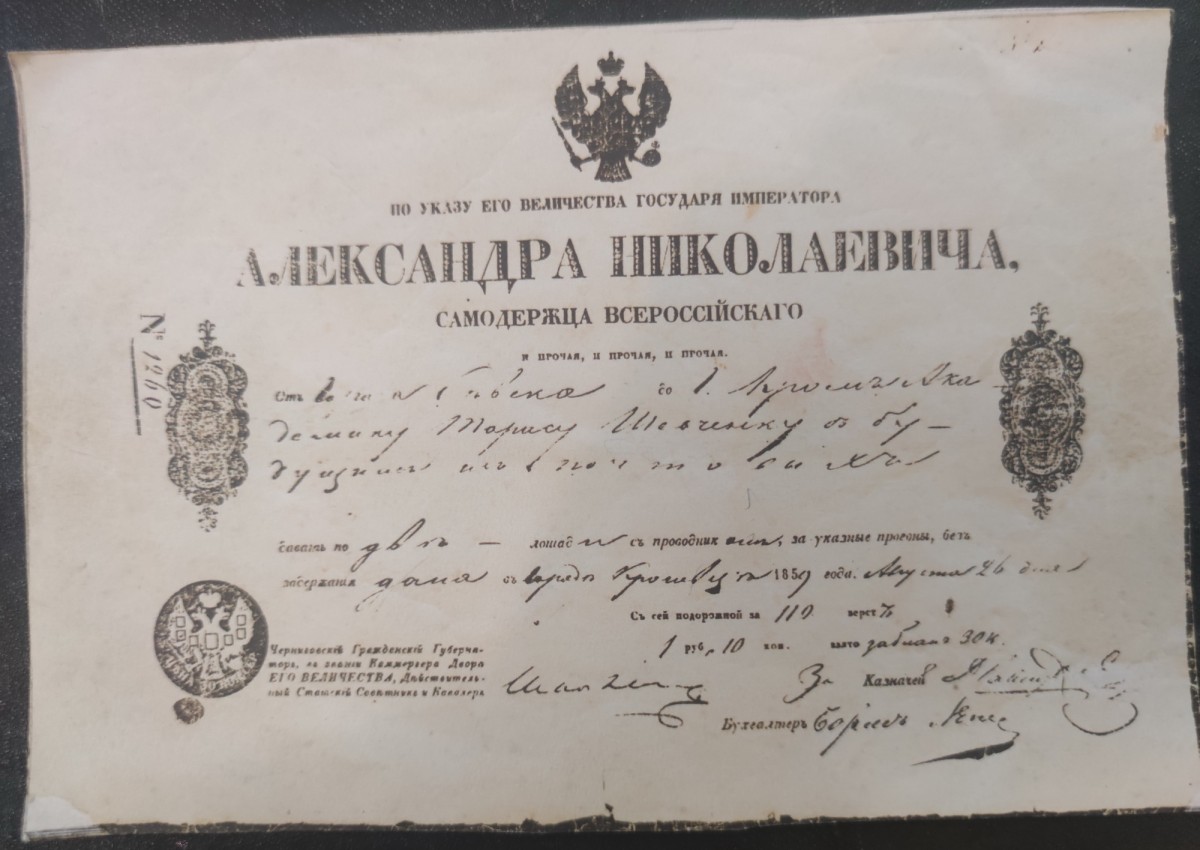 ПО УКАЗУ ЕГО ВЕЛИЧЕСТВА ГОСУДАРЯ ИМПЕРАТОРА
АЛЕКСАНДРА НИКОЛАЕВИЧА,
САМОДЕРЖЦА ВСЕРОССІЙСКАГО
И ПРОЧАЯ, И ПРОЧАЯ, И ПРОЧАЯ.
№ 1260
Отъ до г. Ака-
демику Тарасу Шевченку съ бу-
дущимъ изъ почтовыхъ
давать по двѣ — лошади съ проводникомъ, за указные прогоны, безъ
задержанія дана въ городѣ 1859 года. Августа 26 дня
Съ сей подорожной за 110 верстъ
1 руб. 10 коп. взято за бланк 30 к.
Черниговскій Гражданскій Губерна-
торъ, въ званіи Каммергера Двора
ЕГО ВЕЛИЧЕСТВА, Дѣйствитель-
ный Статскій Совѣтникъ и Кавалеръ
За Казначей
Бухгалтеръ